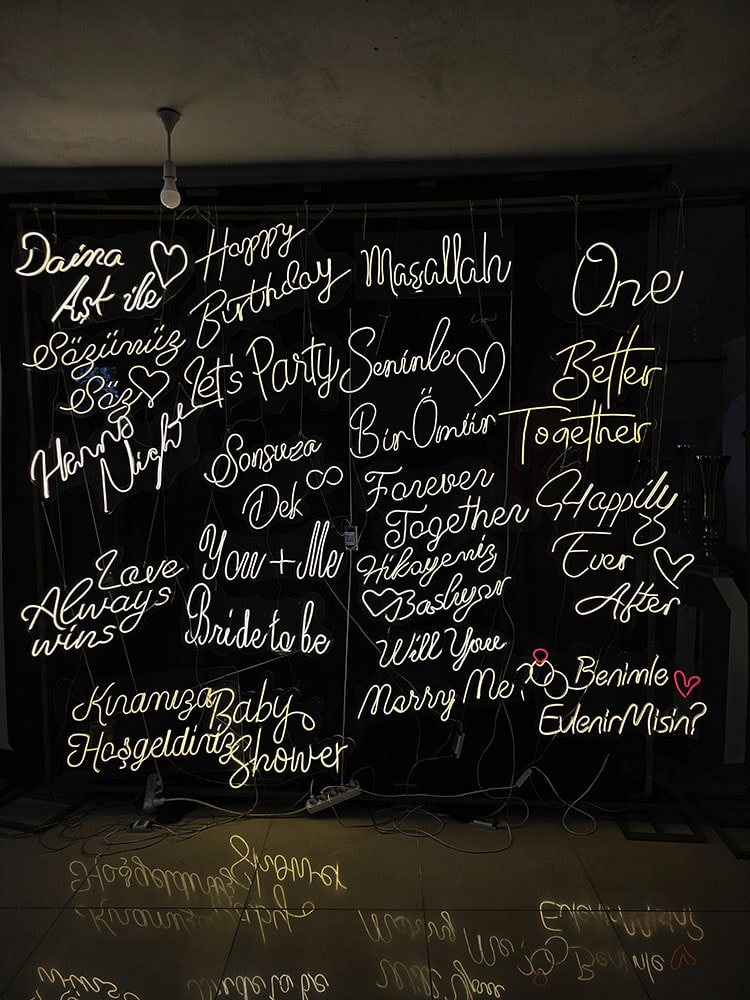 Daima
Aşk ile
Sözümüz
Söz
Henna
Night
Love
Always
wins
Kınamıza
Hoşgeldiniz
Happy
Birthday
Let's Party
Sonsuza
Dek
You + Me
Bride to be
Baby
Shower
Maşallah
Seninle
Bir Ömür
Forever
Together
Hikayemiz
Başlıyor
Will You
Marry Me ?
One
Better
Together
Happily
Ever
After
Benimle
Evlenir Misin?